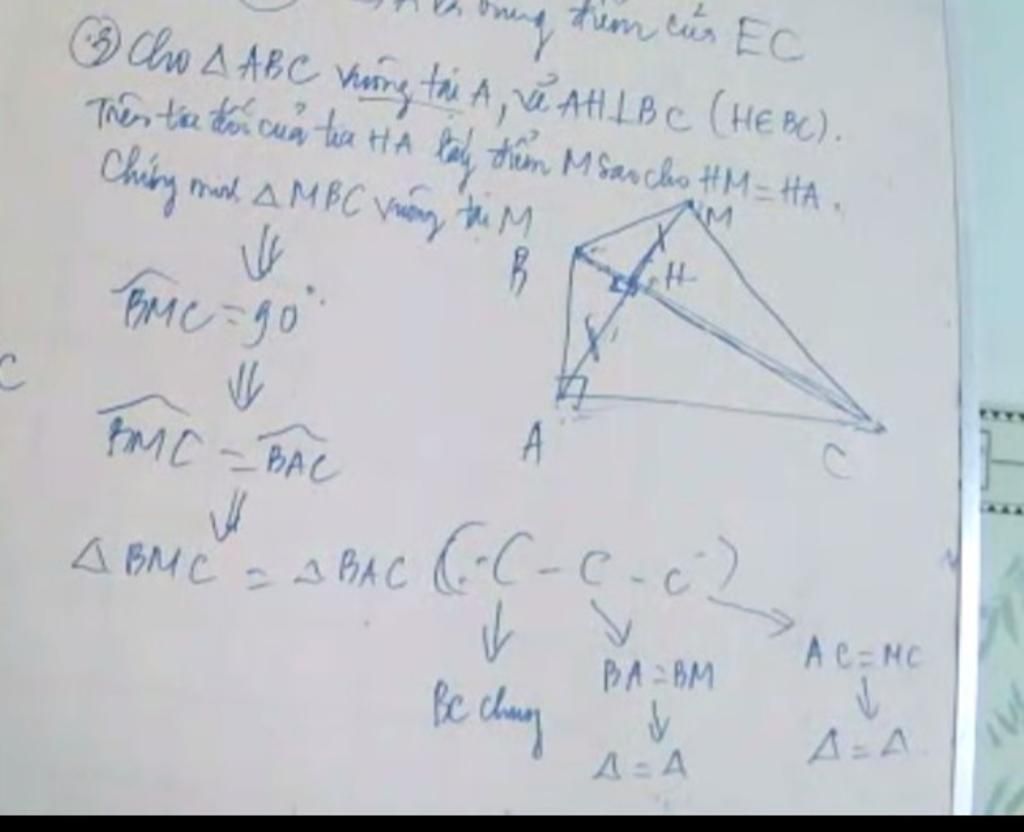 trung điểm của EC
③ Cho △ABC vuông tại A, vẽ AH⊥BC (H∈BC).
Trên tia đối của tia HA lấy điểm M sao cho HM = HA.
Chứng minh △MBC vuông tại M
⇓
BMC = 90°
⇓
BMC = BAC
⇓
△BMC = △BAC (C - C - C)
BC chung
BA = BM
↓
△ = △
AC = MC
↓
△ = △
M
B
H
A
C
C